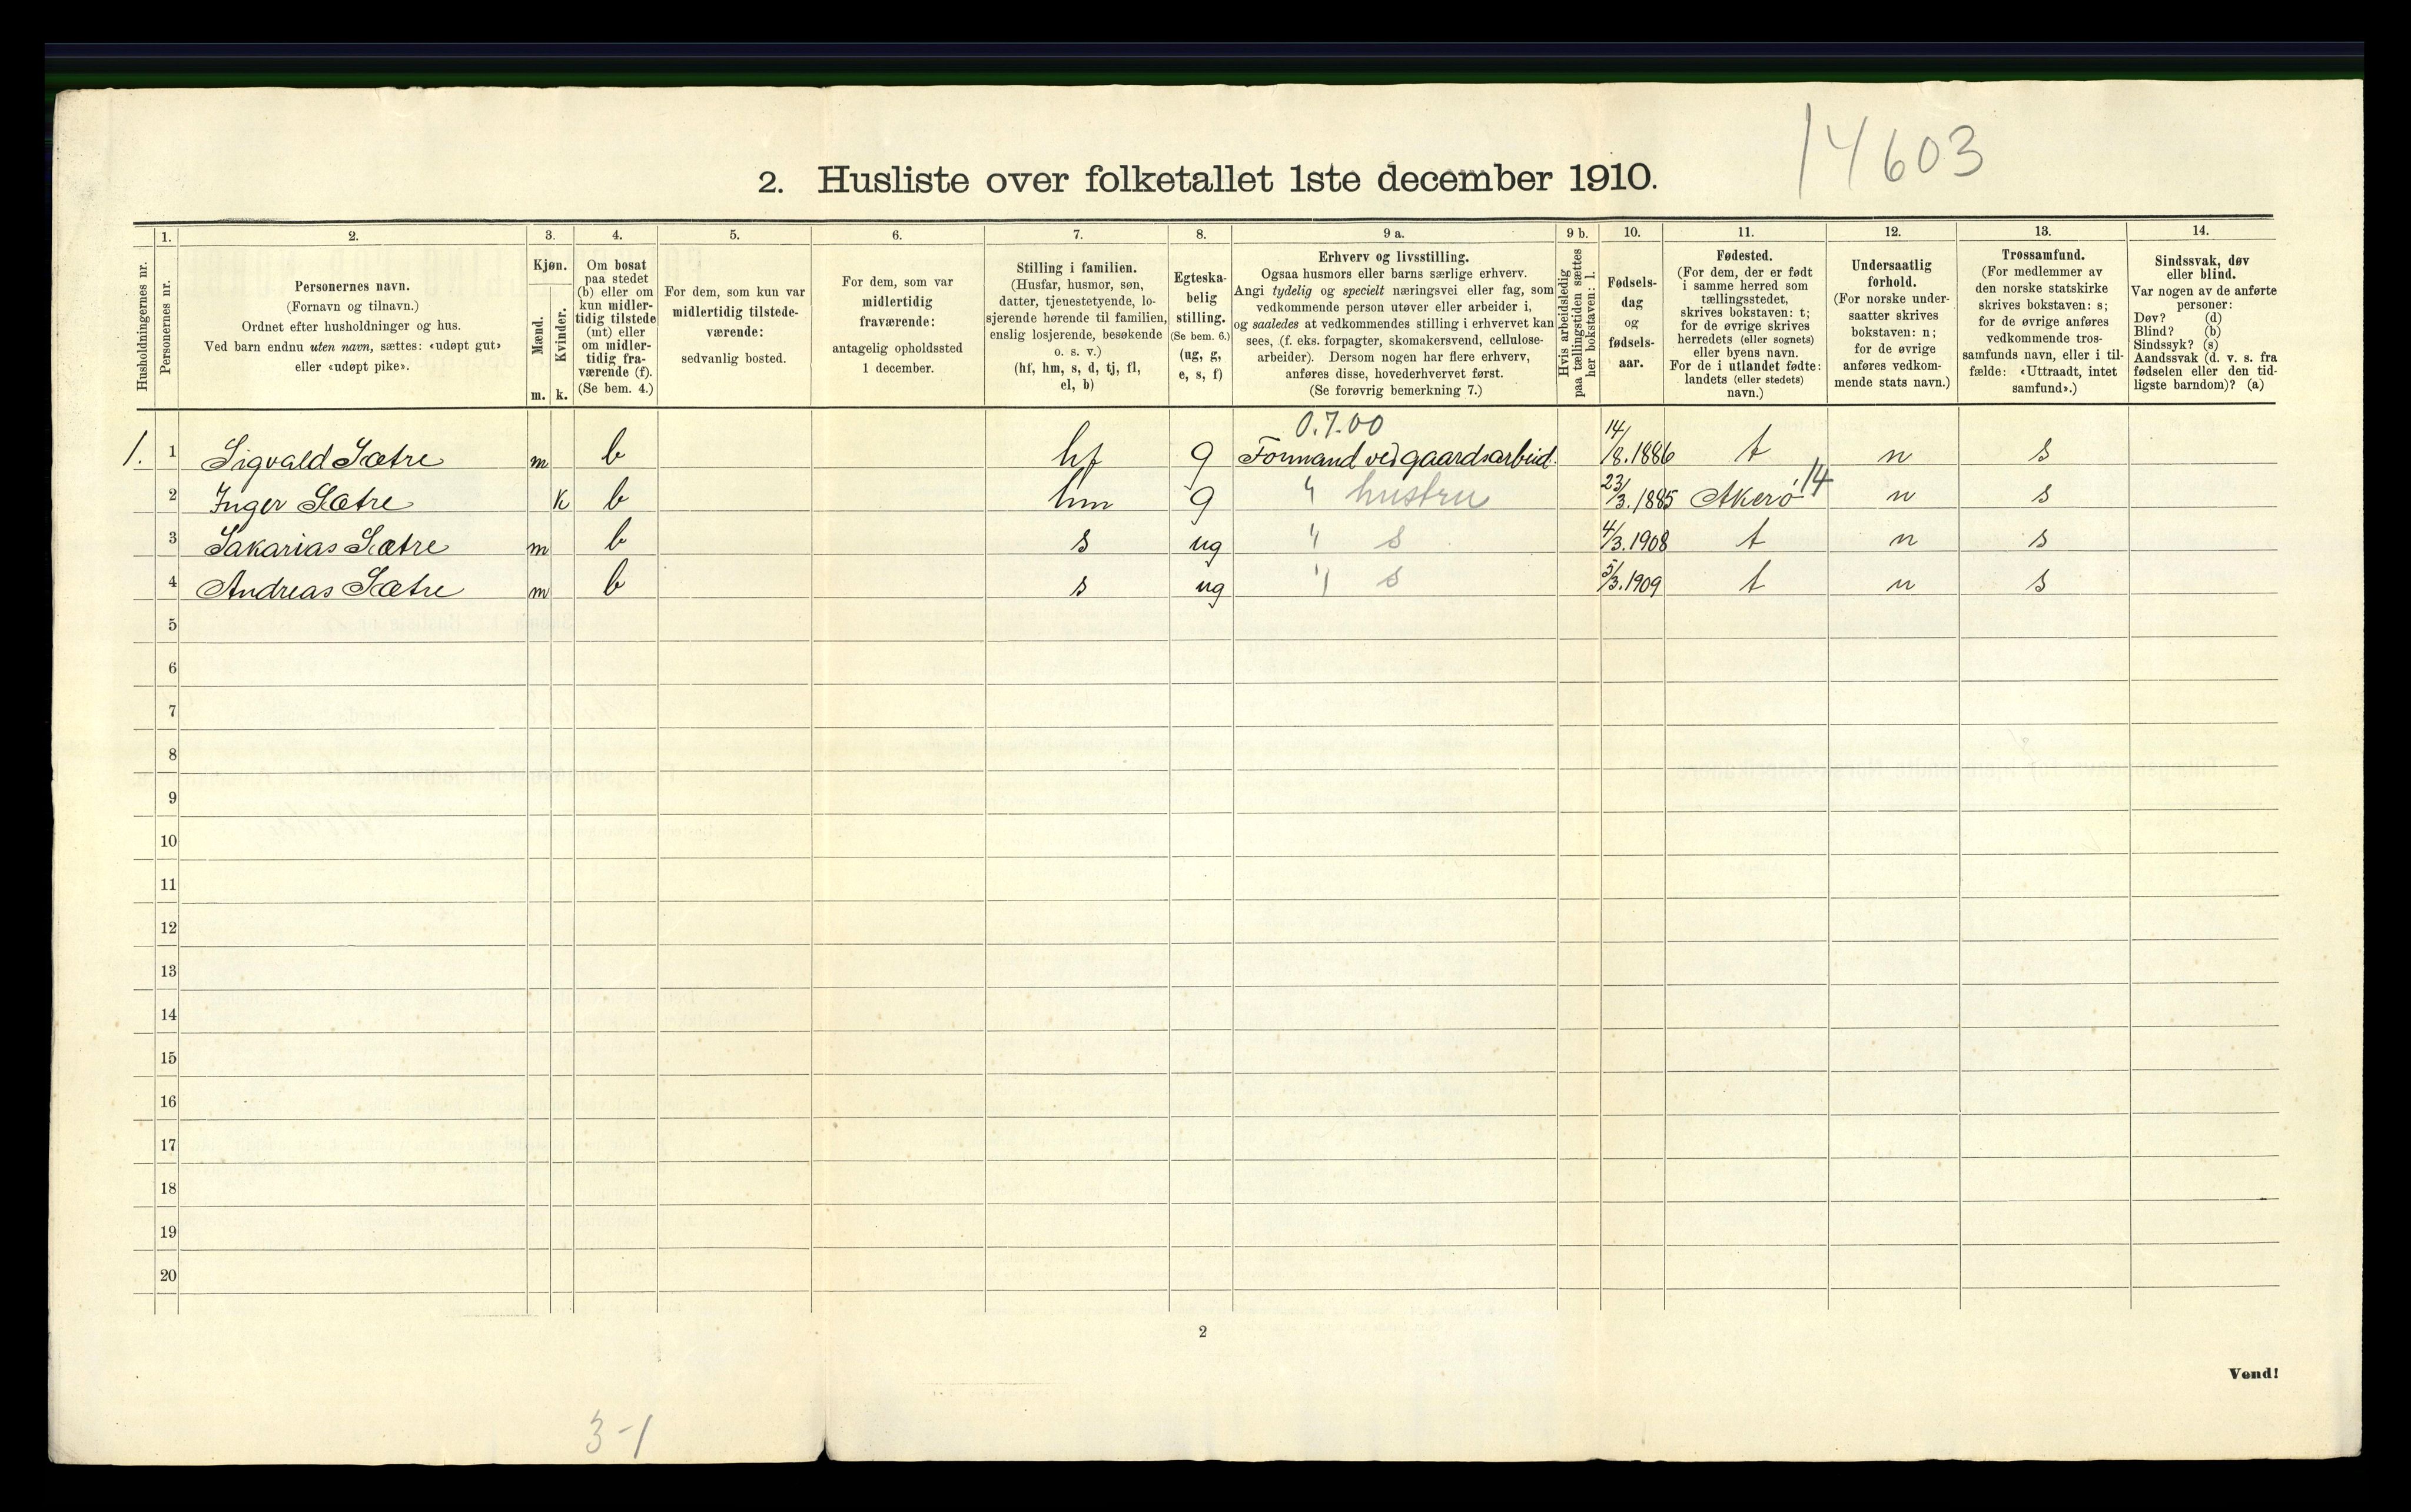 14603
2. Husliste over folketallet 1ste december 1910.
Husholdningernes nr.
1.
Personernes nr.
2.
Personernes navn.
(Fornavn og tilnavn.)
Ordnet efter husholdninger og hus.
Ved barn endnu uten navn, sættes: «udøpt gut»
eller «udøpt pike».
3.
Kjøn.
Mænd.
Kvinder.
m. k.
4.
Om bosat
paa stedet
(b) eller om
kun midler-
tidig tilstede
(mt) eller
om midler-
tidig fra-
værende (f).
(Se bem. 4.)
5.
For dem, som kun var
midlertidig tilstede-
værende:
sedvanlig bosted.
6.
For dem, som var
midlertidig
fraværende:
antagelig opholdssted
1 december.
7.
Stilling i familien.
(Husfar, husmor, søn,
datter, tjenestetyende, lo-
sjerende hørende til familien,
enslig losjerende, besøkende
o. s. v.)
(hf, hm, s, d, tj, fl,
el, b)
8.
Egteska-
belig
stilling.
(Se bem. 6.)
(ug, g,
e, s, f)
9 a.
Erhverv og livsstilling.
Ogsaa husmors eller barns særlige erhverv.
Angi tydelig og specielt næringsvei eller fag, som
vedkommende person utøver eller arbeider i,
og saaledes at vedkommendes stilling i erhvervet kan
sees, (f. eks. forpagter, skomakersvend, cellulose-
arbeider). Dersom nogen har flere erhverv,
anføres disse, hovederhvervet først.
(Se forøvrig bemerkning 7.)
9 b.
Hvis arbeidsledig
paa tællingstiden sættes
her bokstaven: l.
10.
Fødsels-
dag
og
fødsels-
aar.
11.
Fødested.
(For dem, der er født
i samme herred som
tællingsstedet,
skrives bokstaven: t;
for de øvrige skrives
herredets (eller sognets)
eller byens navn.
For de i utlandet fødte:
landets (eller stedets)
navn.)
12.
Undersaatlig
forhold.
(For norske under-
saatter skrives
bokstaven: n;
for de øvrige
anføres vedkom-
mende stats navn.)
13.
Trossamfund.
(For medlemmer av
den norske statskirke
skrives bokstaven: s;
for de øvrige anføres
vedkommende tros-
samfunds navn, eller i til-
fælde: «Uttraadt, intet
samfund».)
14.
Sindssvak, døv
eller blind.
Var nogen av de anførte
personer:
Døv? (d)
Blind? (b)
Sindssyk? (s)
Aandssvak (d. v. s. fra
fødselen eller den tid-
ligste barndom)? (a)
0.7.00
1. 1 Sigvald Sætre m b hf g Formand ved gaardsarbeid. 14/8.1886 t n s
2 Inger Sætre k b hm g " hustru 23/3.1885 Akerö 14 n s
3 Sakarias Sætre m b s ug " s 4/3.1908 t n s
4 Andreas Sætre m b s ug " s 5/3.1909 t n s
5
6
7
8
9
10
11
12
13
14
15
16
17
18
19
20
2
Vend!
3-1